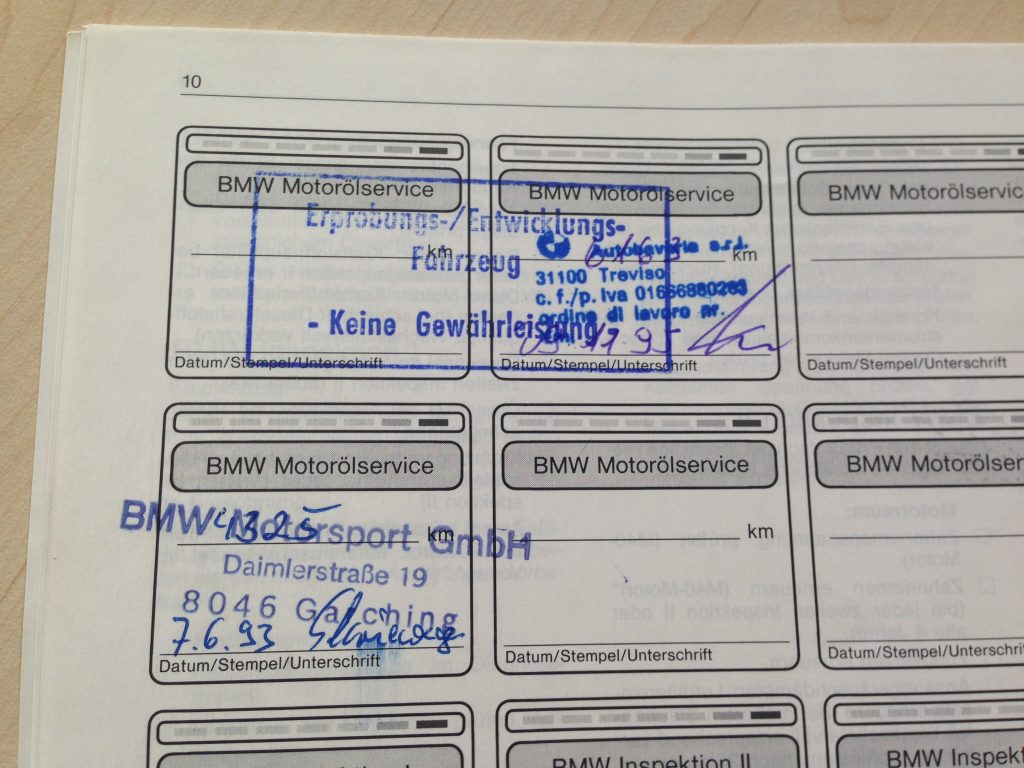 10
BMW Motorölservice
BMW Motorölservice
BMW Motorölservic
Erprobungs-/Entwicklungs-
Fahrzeug
- Keine Gewährleistung
km
Autobavaria s.r.l.
31100 Treviso
c.f./p. Iva
ordine di lavoro nr.
km
Datum/Stempel/Unterschrift
Datum/Stempel/Unterschrift
Datum/Stempel/Unterschrift
BMW Motorölservice
BMW Motorölservice
BMW Motorölser
4325 km
BMW Motorsport GmbH
Daimlerstraße 19
8046 Garching
7.6.93
km
Datum/Stempel/Unterschrift
Datum/Stempel/Unterschrift
Datum/Stempel/Unterschrift
BMW Inspektion II
BMW Inspekt